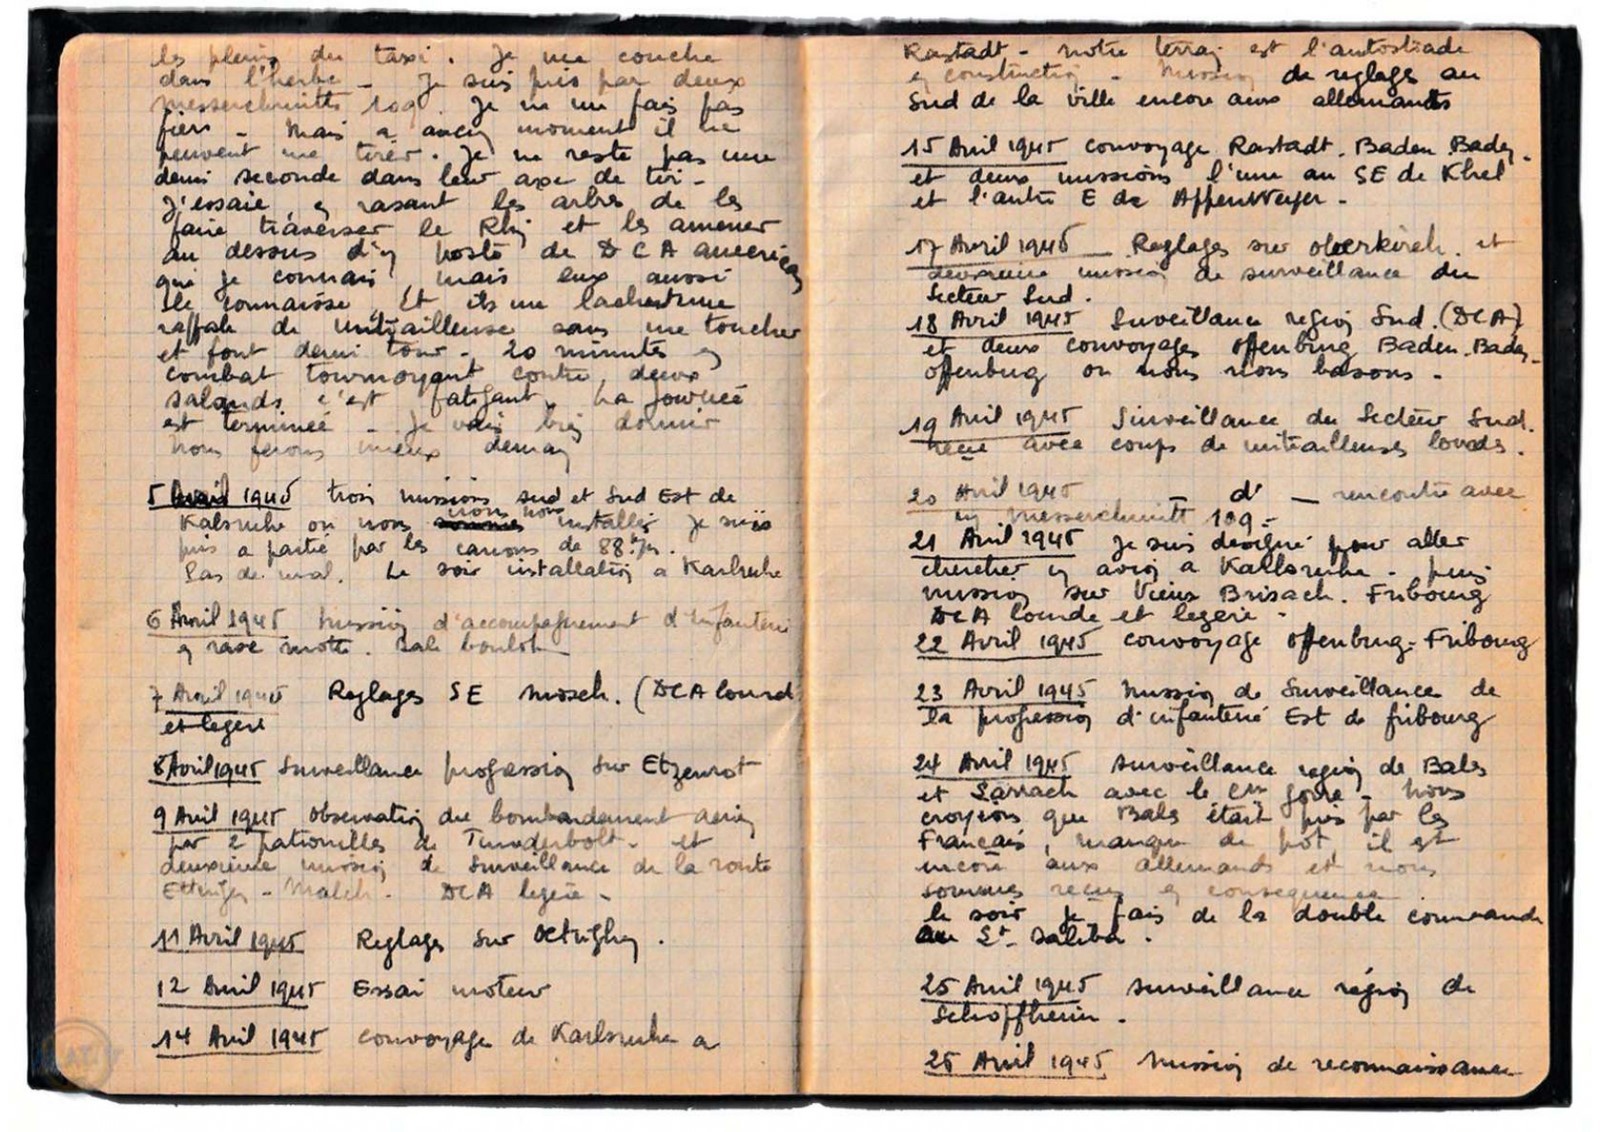 les pleins du taxi. Je me couche
dans l'herbe - Je suis pris par deux
messerchmitts 109. Je ne me fais pas
fier - Mais a aucun moment il ne
peuvent me tirer. Je ne reste pas une
demi seconde dans leur axe de tir -
J'essaie, en rasant les arbres de les
faire traverser le Rhin et les amener
au dessus d'un poste de DCA americain
que je connais, mais eux aussi
le connaisse. Et ils me lachent une
raffale de mitrailleuse sans me toucher
et font demi tour - 20 minutes en
combat tournoyant contre deux
salauds c'est fatigant. La journée
est terminée - Je vais bien dormir
nous ferons mieux demain
5 Avril 1945 trois missions sud et Sud Est de
Kalsruhe ou nous sommes nous nous installés je suis
pris a partie par les canons de 88
Pas de mal. Le soir installation a Karlsruhe
6 Avril 1945 Mission d'accompagnement d'infanterie
en rase motte. Sale boulot
7 Avril 1945 Reglages SE Mosch. (DCA lourde
et legere
8 Avril 1945 Surveillance progression sur Etzenrot
9 Avril 1945 Observation du bombardement aerien
par 2 patrouilles de Tunderbolt - et
deuxieme mission de surveillance de la route
Ettingen - Malch. DCA legere -
11 Avril 1945 Reglages sur Oetigheim.
12 Avril 1945 Essai moteur
14 Avril 1945 convoyage de Karlsruhe a
Rastadt - Notre terrain est l'autostrade
en construction - Mission de reglages au
Sud de la ville encore aux allemands
15 Avril 1945 convoyage Rastadt. Baden Baden -
et deux missions l'une au SE de Khel
et l'autre E de Appenweyer -
17 Avril 1945 - Reglages sur oberkirch. et
deuxieme mission de surveillance du
Secteur Sud.
18 Avril 1945 Surveillance region Sud. (DCA)
et deux convoyages Offenburg Baden-Baden -
offenburg ou nous nous basons -
19 Avril 1945 Surveillance du Secteur Sud.
reçu avec coups de mitrailleuses lourdes.
20 Avril 1945 - d° - rencontre avec
un messerchmitt 109 -
21 Avril 1945 Je suis designé pour aller
chercher un avion a Karlsruhe - puis
mission sur Vieux Brisach. Fribourg
DCA lourde et legere -
22 Avril 1945 convoyage Offenburg - Fribourg
23 Avril 1945 Mission de Surveillance de
la progression d'infanterie Est de fribourg
24 Avril 1945 surveillance region de Bales
et Larrach avec le Gorre - Nous
croyions que Bales était pris par les
Français, manque de pot, il est
encore aux allemands et nous
sommes recus en consequence
le soir je fais de la double commande
au Lt Saliba.
25 Avril 1945 surveillance région de
Schoffheim.
26 Avril 1945 Mission de reconnaissance